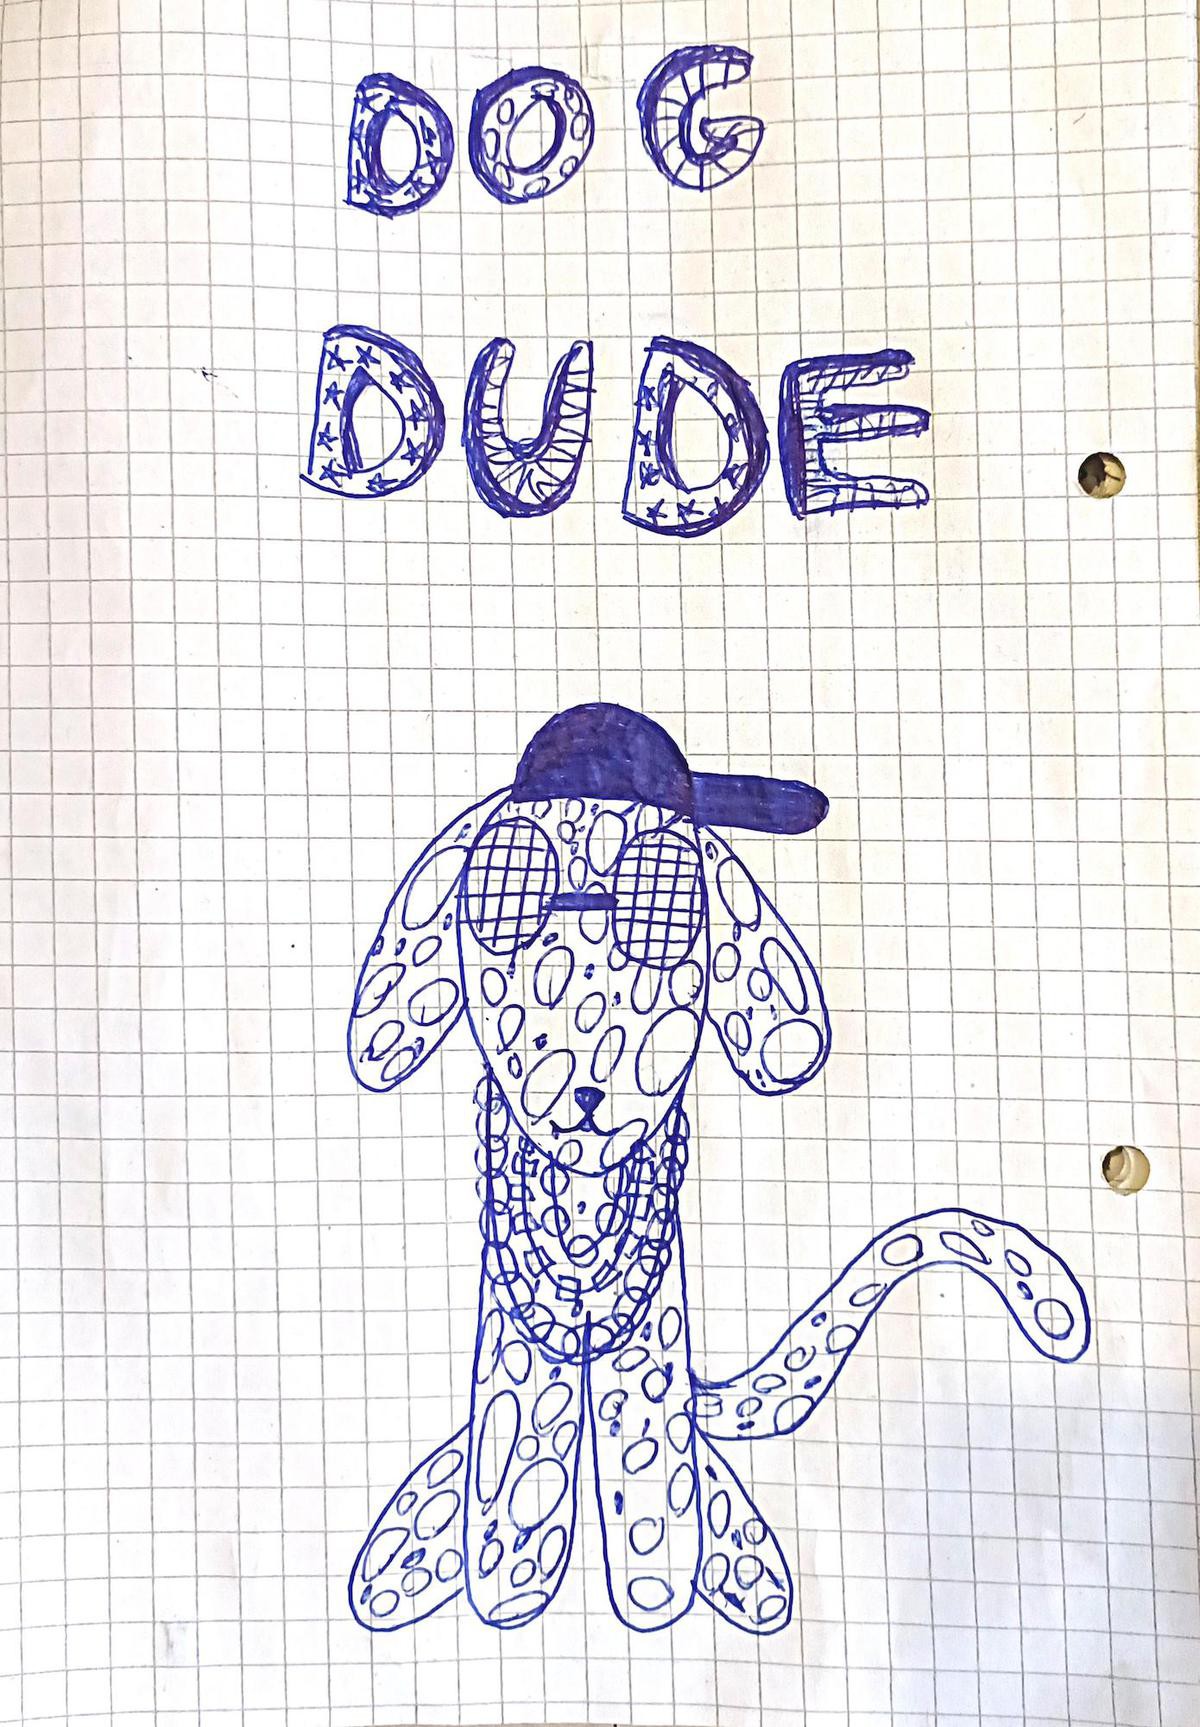 DOG
DUDE